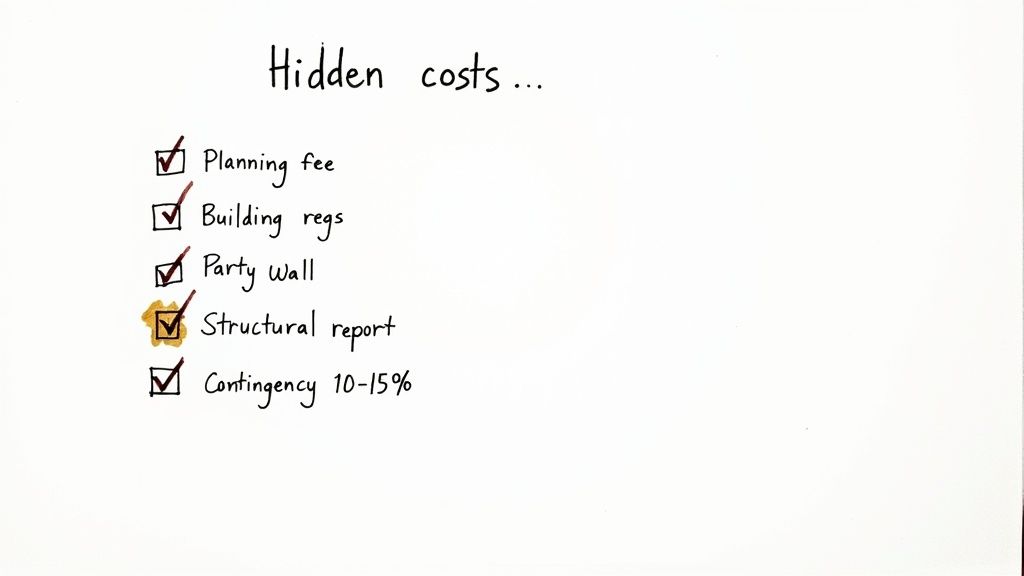 Hidden costs...
Planning fee
Building regs
Party wall
Structural report
Contingency 10-15%